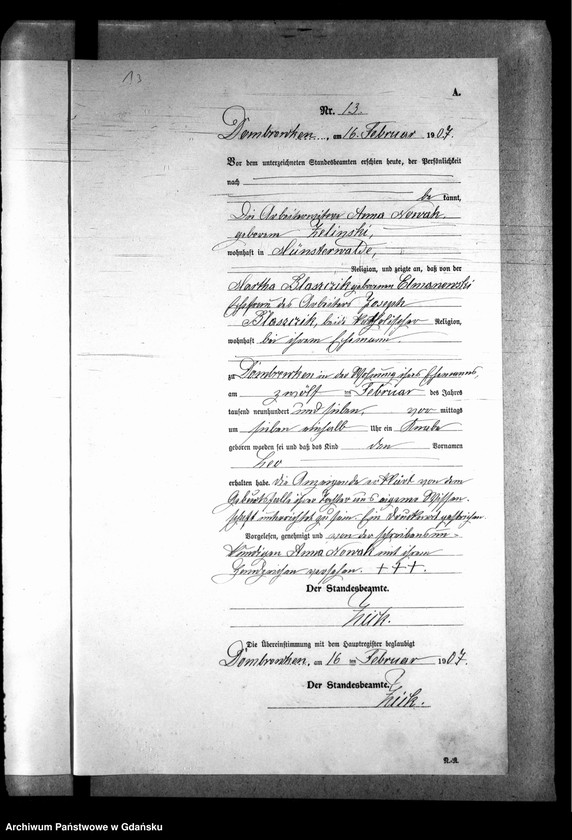 13
A.
Nr. 13.
Dombrowken, am 16. Februar 1907.
Vor dem unterzeichneten Standesbeamten erschien heute, der Persönlichkeit
nach
be kannt,
Die Arbeiterwitwe Anna Nowak
geborene Zelinski,
wohnhaft in Münsterwalde,
Religion, und zeigte an, daß von der
Martha Blaszczik geborenen Elmanowski
Ehefrau des Arbeiters Joseph
Blaszczik, beide katholischer Religion,
wohnhaft bei ihrem Ehemann
zu Dombrowken in der Wohnung ihres Ehemannes,
am zwölf ten Februar des Jahres
tausend neunhundert und sieben, vor mittags
um sieben einhalb Uhr ein Knabe
geboren worden sei und daß das Kind den Vornamen
Leo
erhalten habe. Die Anzeigende erklärt von dem
Geburtsfalle ihrer Tochter aus eigener Wissen-
schaft unterrichtet zu sein. Ein Druckwort gestrichen.
Vorgelesen, genehmigt und von der schreibensun-
kundigen Anna Nowak mit ihrem
Handzeichen versehen. +++.
Der Standesbeamte.
Die Übereinstimmung mit dem Hauptregister beglaubigt
Dombrowken, am 16 ten Februar 1907.
Der Standesbeamte.
Archiwum Państwowe w Gdańsku